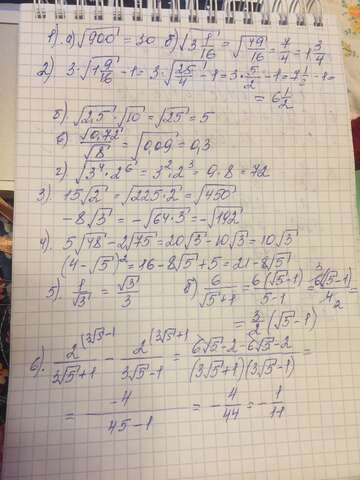 1) а) √900 = 30 б) √(3 1/16) = √(49/16) = 7/4 = 1 3/4
2) 3·√(1 9/16) - 1 = 3·√(25/4) - 1 = 3·5/2 - 1 = 7 1/2 - 1 =
= 6 1/2
б) √2,5 · √10 = √25 = 5
в) √0,72 / √8 = √0,09 = 0,3
г) √(3⁴ · 2⁶) = 3² · 2³ = 9 · 8 = 72
3) 15√2 = √(225·2) = √450
-8√3 = -√(64·3) = -√192
4) 5√48 - 2√75 = 20√3 - 10√3 = 10√3
(4 - √5)² = 16 - 8√5 + 5 = 21 - 8√5
5) 1/√3 = √3/3 б) 6/(√5+1) = 6(√5-1)/(5-1) = 6(√5-1)/4 3 2
= 3/2 (√5-1)
6). 2/(3√5+1) (3√5-1 - 2/(3√5-1) (3√5+1 = (6√5-2-6√5-2)/((3√5+1)(3√5-1)) =
= -4/(45-1) = -4/44 = -1/11